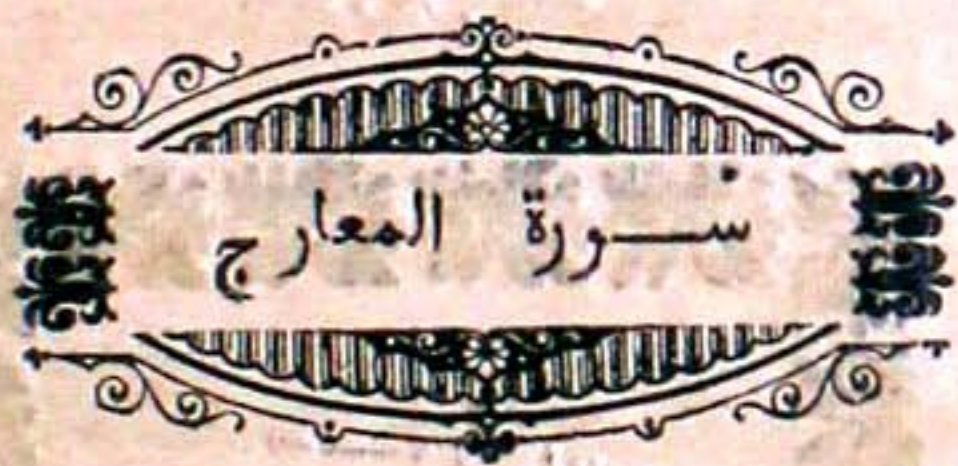 سـورة المعارج